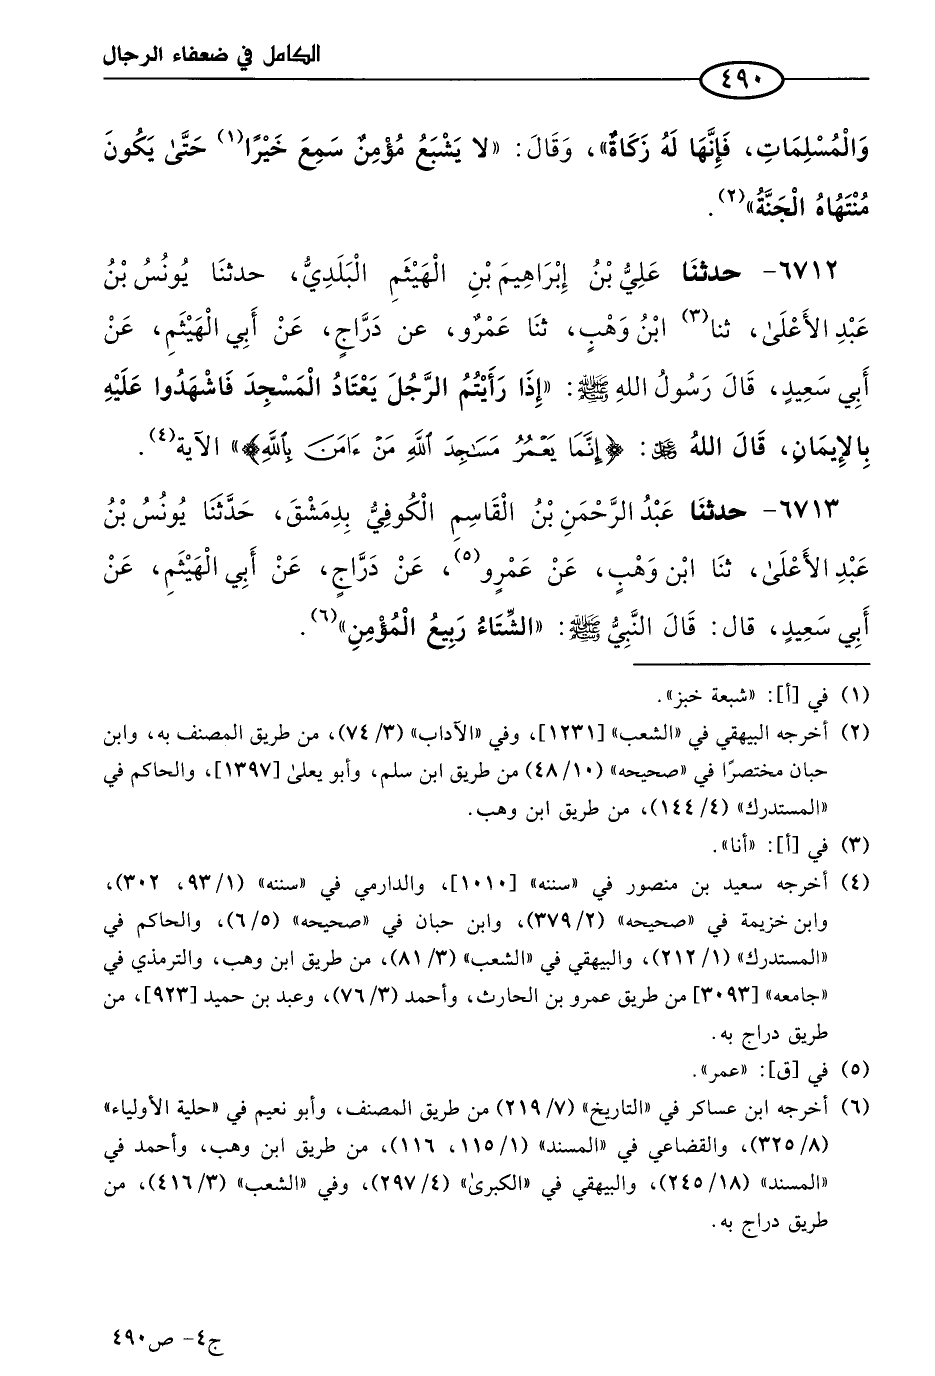 الكامل في ضعفاء الرجال
٤٩٠
وَالْمُسْلِمَاتِ، فَإِنَّهَا لَهُ زَكَاةٌ»، وَقَالَ: «لا يَشْبَعُ مُؤْمِنٌ سَمِعَ خَيْرًا(١) حَتَّىٰ يَكُونَ
مُنْتَهَاهُ الْجَنَّةُ»(٢).
٦٧١٢- حدثنَا عَلِيُّ بْنُ إِبْرَاهِيمَ بْنِ الْهَيْثَمِ الْبَلَدِيُّ، حدثنَا يُونُسُ بْنُ
عَبْدِ الأَعْلَىٰ، ثنا(٣) ابْنُ وَهْبٍ، ثنَا عَمْرٌو، عن دَرَّاجٍ، عَنْ أَبِي الْهَيْثَمِ، عَنْ
أَبِي سَعِيدٍ، قَالَ رَسُولُ اللهِ ﷺ: «إِذَا رَأَيْتُمُ الرَّجُلَ يَعْتَادُ الْمَسْجِدَ فَاشْهَدُوا عَلَيْهِ
بِالإِيمَانِ، قَالَ اللهُ ﷻ: ﴿إِنَّمَا يَعْمُرُ مَسَٰجِدَ ٱللَّهِ مَنْ ءَامَنَ بِٱللَّهِ﴾» الآية(٤).
٦٧١٣- حدثنَا عَبْدُ الرَّحْمَنِ بْنُ الْقَاسِمِ الْكُوفِيُّ بِدِمَشْقَ، حَدَّثَنَا يُونُسُ بْنُ
عَبْدِ الأَعْلَىٰ، ثنَا ابْن وَهْبٍ، عَنْ عَمْرٍو(٥)، عَنْ دَرَّاجٍ، عَنْ أَبِي الْهَيْثَمِ، عَنْ
أَبِي سَعِيدٍ، قال: قَالَ النَّبِيُّ ﷺ: «الشِّتَاءُ رَبِيعُ الْمُؤْمِنِ»(٦).
(١) في [أ]: «شبعة خبز».
(٢) أخرجه البيهقي في «الشعب» [١٢٣١]، وفي «الآداب» (٣/ ٧٤)، من طريق المصنف به، وابن
حبان مختصرًا في «صحيحه» (١٠/ ٤٨) من طريق ابن سلم، وأبو يعلىٰ [١٣٩٧]، والحاكم في
«المستدرك» (٤/ ١٤٤)، من طريق ابن وهب.
(٣) في [أ]: «أنا».
(٤) أخرجه سعيد بن منصور في «سننه» [١٠١٠]، والدارمي في «سننه» (١/ ٩٣، ٣٠٢)،
وابن خزيمة في «صحيحه» (٢/ ٣٧٩)، وابن حبان في «صحيحه» (٥/ ٦)، والحاكم في
«المستدرك» (١/ ٢١٢)، والبيهقي في «الشعب» (٣/ ٨١)، من طريق ابن وهب، والترمذي في
«جامعه» [٣٠٩٣] من طريق عمرو بن الحارث، وأحمد (٣/ ٧٦)، وعبد بن حميد [٩٢٣]، من
طريق دراج به.
(٥) في [ق]: «عمر».
(٦) أخرجه ابن عساكر في «التاريخ» (٧/ ٢١٩) من طريق المصنف، وأبو نعيم في «حلية الأولياء»
(٨/ ٣٢٥)، والقضاعي في «المسند» (١/ ١١٥، ١١٦)، من طريق ابن وهب، وأحمد في
«المسند» (١٨/ ٢٤٥)، والبيهقي في «الكبرىٰ» (٤/ ٢٩٧)، وفي «الشعب» (٣/ ٤١٦)، من
طريق دراج به.
ج٤- ص٤٩٠